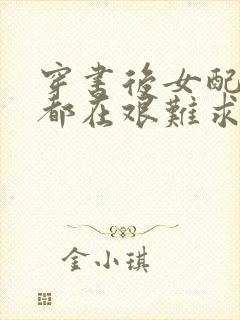 穿書後女配
都在艱難求
金小琪